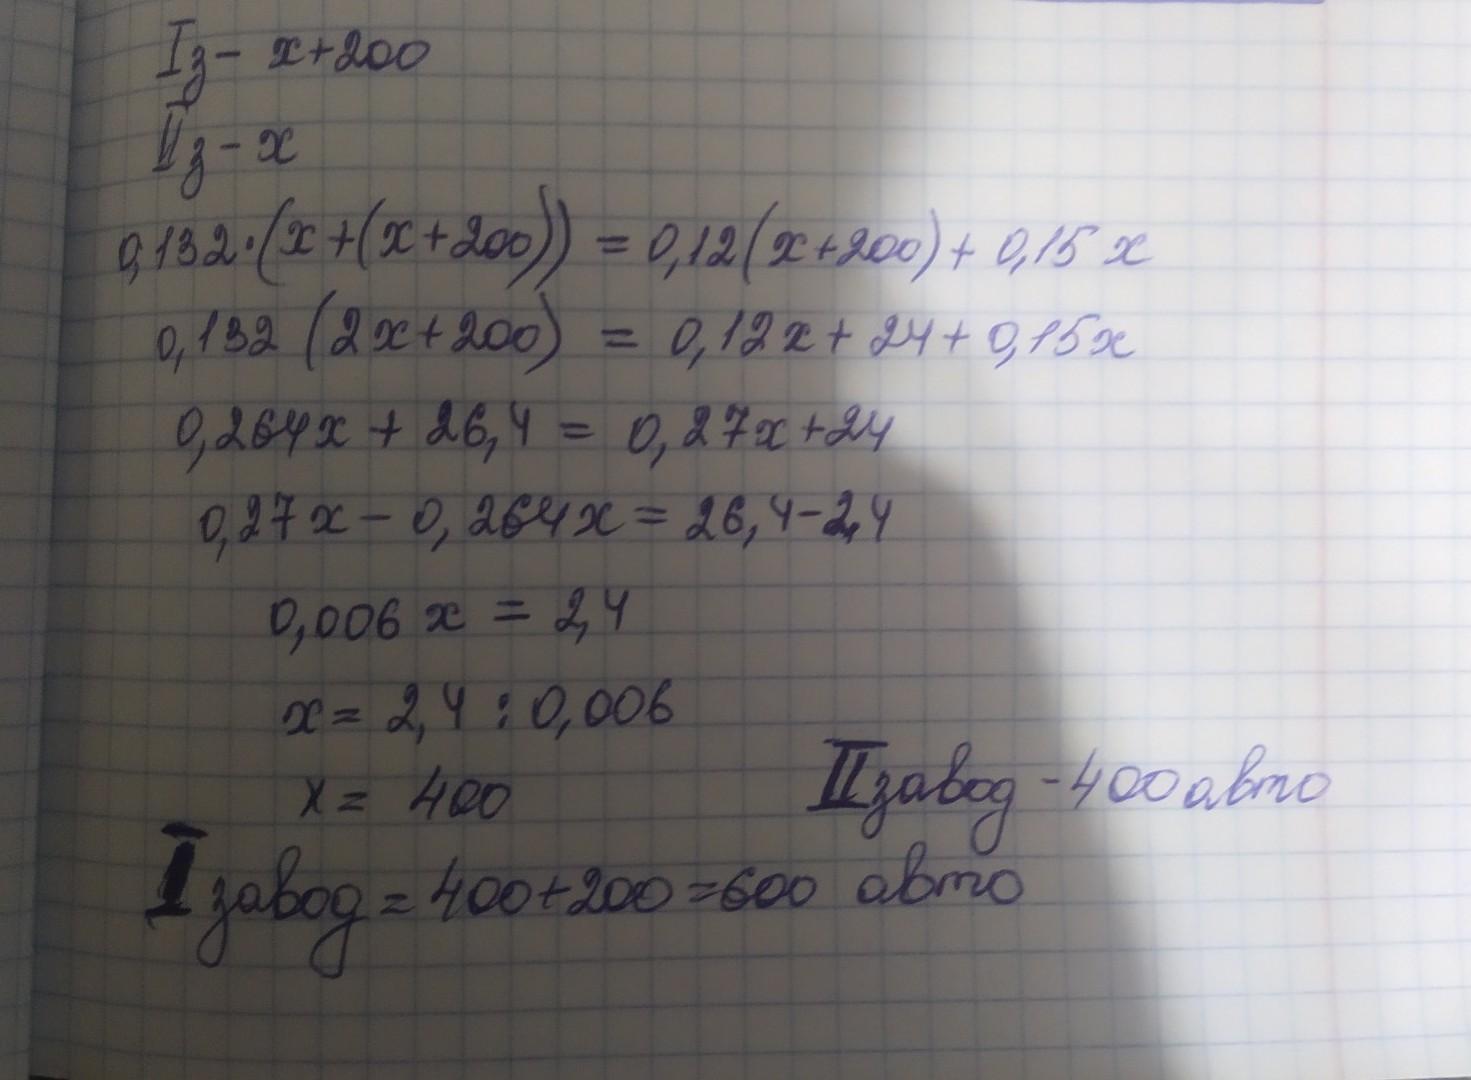 Iз - x+200
IIз - x
0,132·(x+(x+200)) = 0,12(x+200)+ 0,15x
0,132 (2x+200) = 0,12x+24+0,15x
0,264x + 26,4 = 0,27x+24
0,27x - 0,264x = 26,4-2,4
0,006x = 2,4
x= 2,4 : 0,006
x= 400
II завод - 400 авто
I завод = 400+200 =600 авто